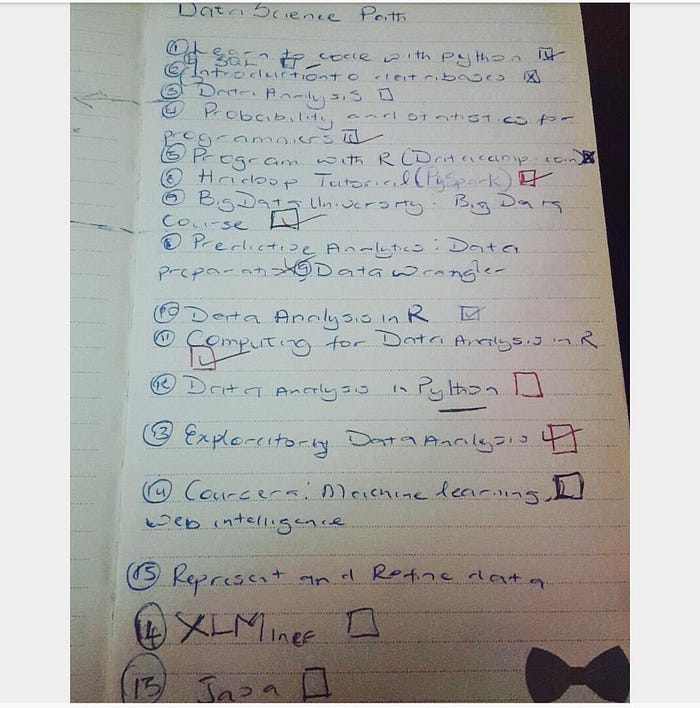 Data Science Path
① Learn to code with python ☑
SQL
② Introduction to databases ☒
③ Data Analysis ☐
④ Probability and statistics for
programmers ☑
⑤ Program with R (Datacamp.com) ☒
⑥ Hadoop Tutorial (PySpark) ☑
⑦ BigData University: Big Data
Course ☑
⑧ Predictive Analytics: Data
preparation ⑨ Data wrangler
⑩ Data Analysis in R ☑
⑪ Computing for Data Analysis in R
☑
⑫ Data Analysis in Python ☐
⑬ Exploratory Data Analysis ☑
⑭ Coursera: Machine learning ☐
Web intelligence
⑮ Represent and Refine data
⑭ XLMiner ☐
⑬ Java ☐